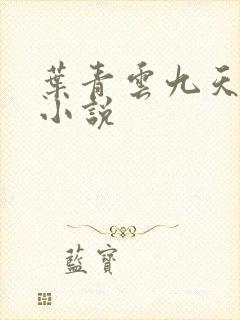 葉青雲九天
小說
藍寶